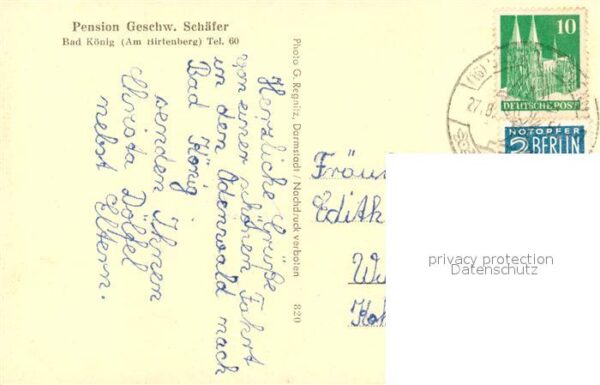 Pension Geschw. Schäfer
Bad König (Am Hirtenberg) Tel. 60
Herzliche Grüße
von einer schönen Fahrt
in dem Odenwald nach
Bad König
senden Ihnen
Christa Döltel
nebst Eltern.
Photo G. Regnitz, Darmstadt / Nachdruck verboten 820
10
DEUTSCHE POST
NOTOPFER
2 BERLIN
Fräu
Edith
privacy protection
Datenschutz